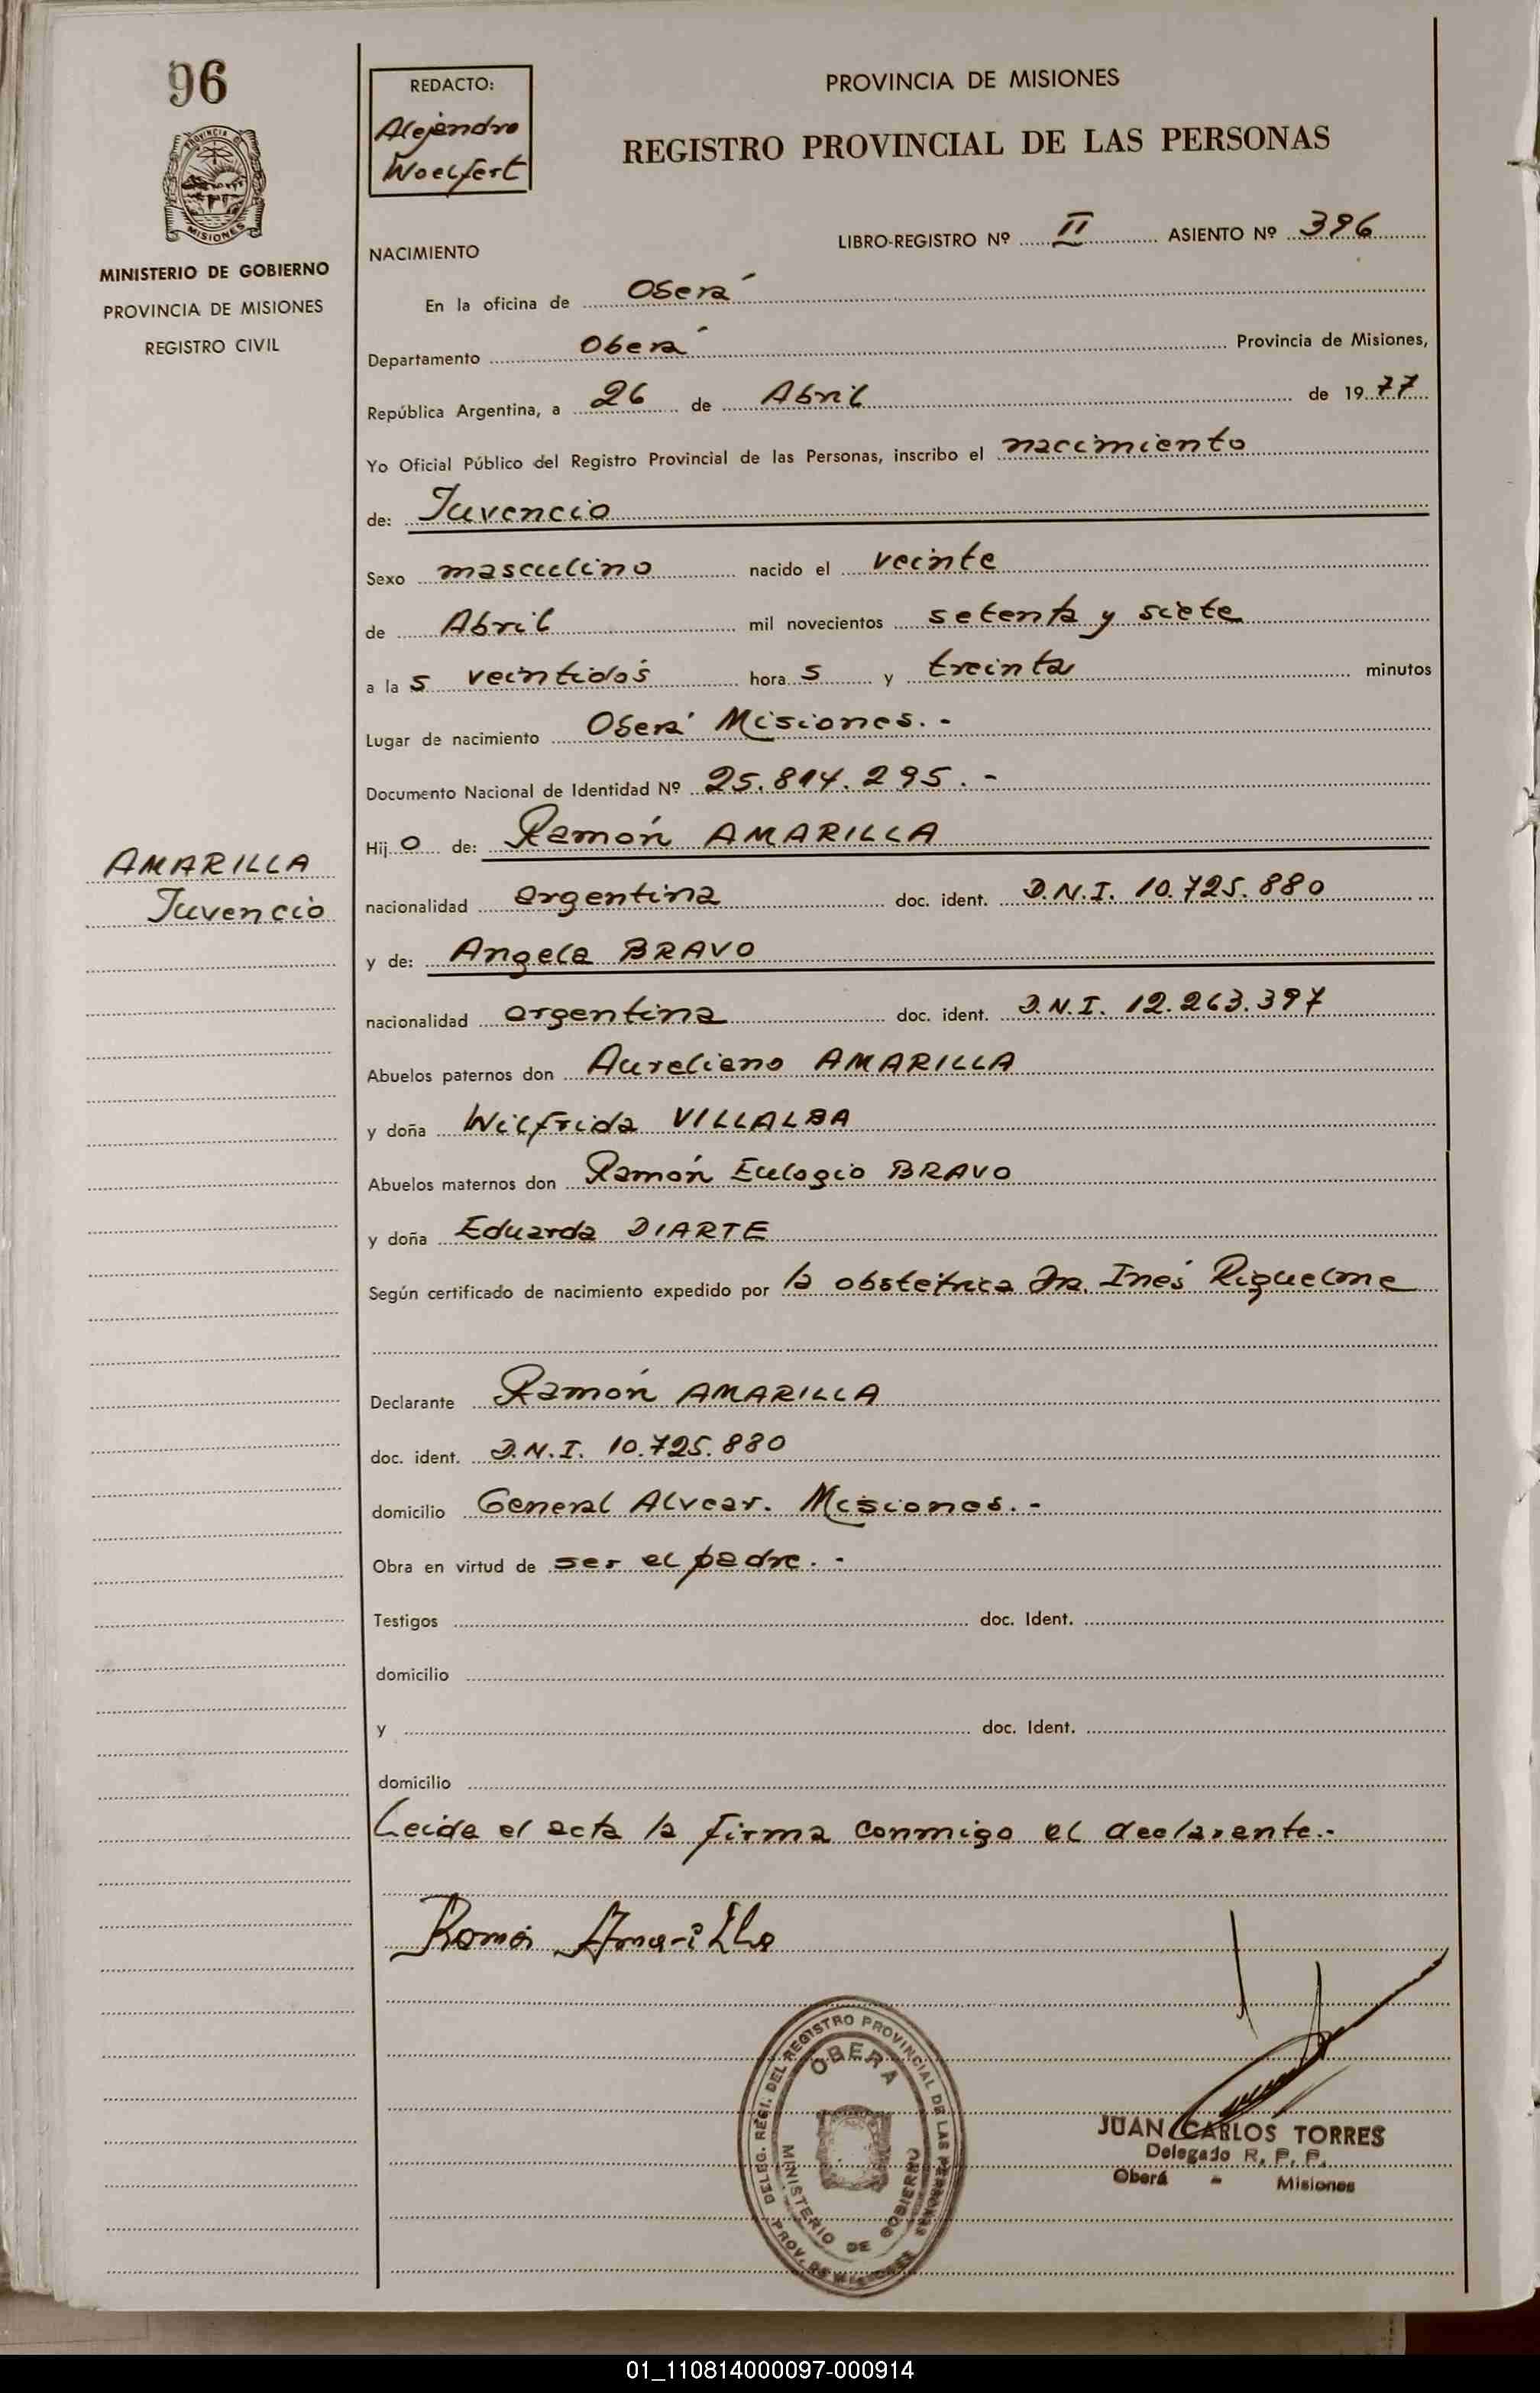 96
PROVINCIA DE
MISIONES
MINISTERIO DE GOBIERNO
PROVINCIA DE MISIONES
REGISTRO CIVIL
AMARILLA
Juvencio
REDACTO:
Alejandro
Woelfert
PROVINCIA DE MISIONES
REGISTRO PROVINCIAL DE LAS PERSONAS
LIBRO-REGISTRO Nº II ASIENTO Nº 396
NACIMIENTO
En la oficina de Oberá
Departamento Oberá Provincia de Misiones,
República Argentina, a 26 de Abril de 1977
Yo Oficial Público del Registro Provincial de las Personas, inscribo el nacimiento
de: Juvencio
Sexo masculino nacido el veinte
de Abril mil novecientos setenta y siete
a las veintidós horas y treinta minutos
Lugar de nacimiento Oberá Misiones.-
Documento Nacional de Identidad Nº 25.814.295.-
Hijo de: Ramón AMARILLA
nacionalidad argentina doc. ident. D.N.I. 10.725.880
y de: Angela BRAVO
nacionalidad argentina doc. ident. D.N.I. 12.263.397
Abuelos paternos don Aureliano AMARILLA
y doña Wilfrida VILLALBA
Abuelos maternos don Ramón Eulogio BRAVO
y doña Eduarda DIARTE
Según certificado de nacimiento expedido por la obstétrica Inés Riquelme
Declarante Ramón AMARILLA
doc. ident. D.N.I. 10.725.880
domicilio General Alvear. Misiones.-
Obra en virtud de ser el padre.-
Testigos doc. Ident.
domicilio
y doc. Ident.
domicilio
Leida el acta la firma conmigo el declarante.-
Ramón Amarilla
DELEG. REGI. DEL REGISTRO PROVINCIAL DE LAS PERSONAS
OBERA
MINISTERIO DE GOBIERNO
PROV. DE MISIONES
JUAN CARLOS TORRES
Delegado R. P. P.
Oberá - Misiones
01_110814000097-000914